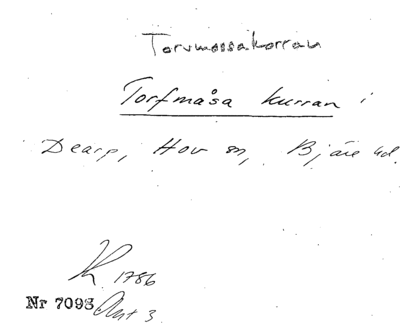 Torvmossakorran
Torfmåsa kurran i
Dearp, Hov sn, Bjäre hd.
K 1786
Nr 7093 Ant 3